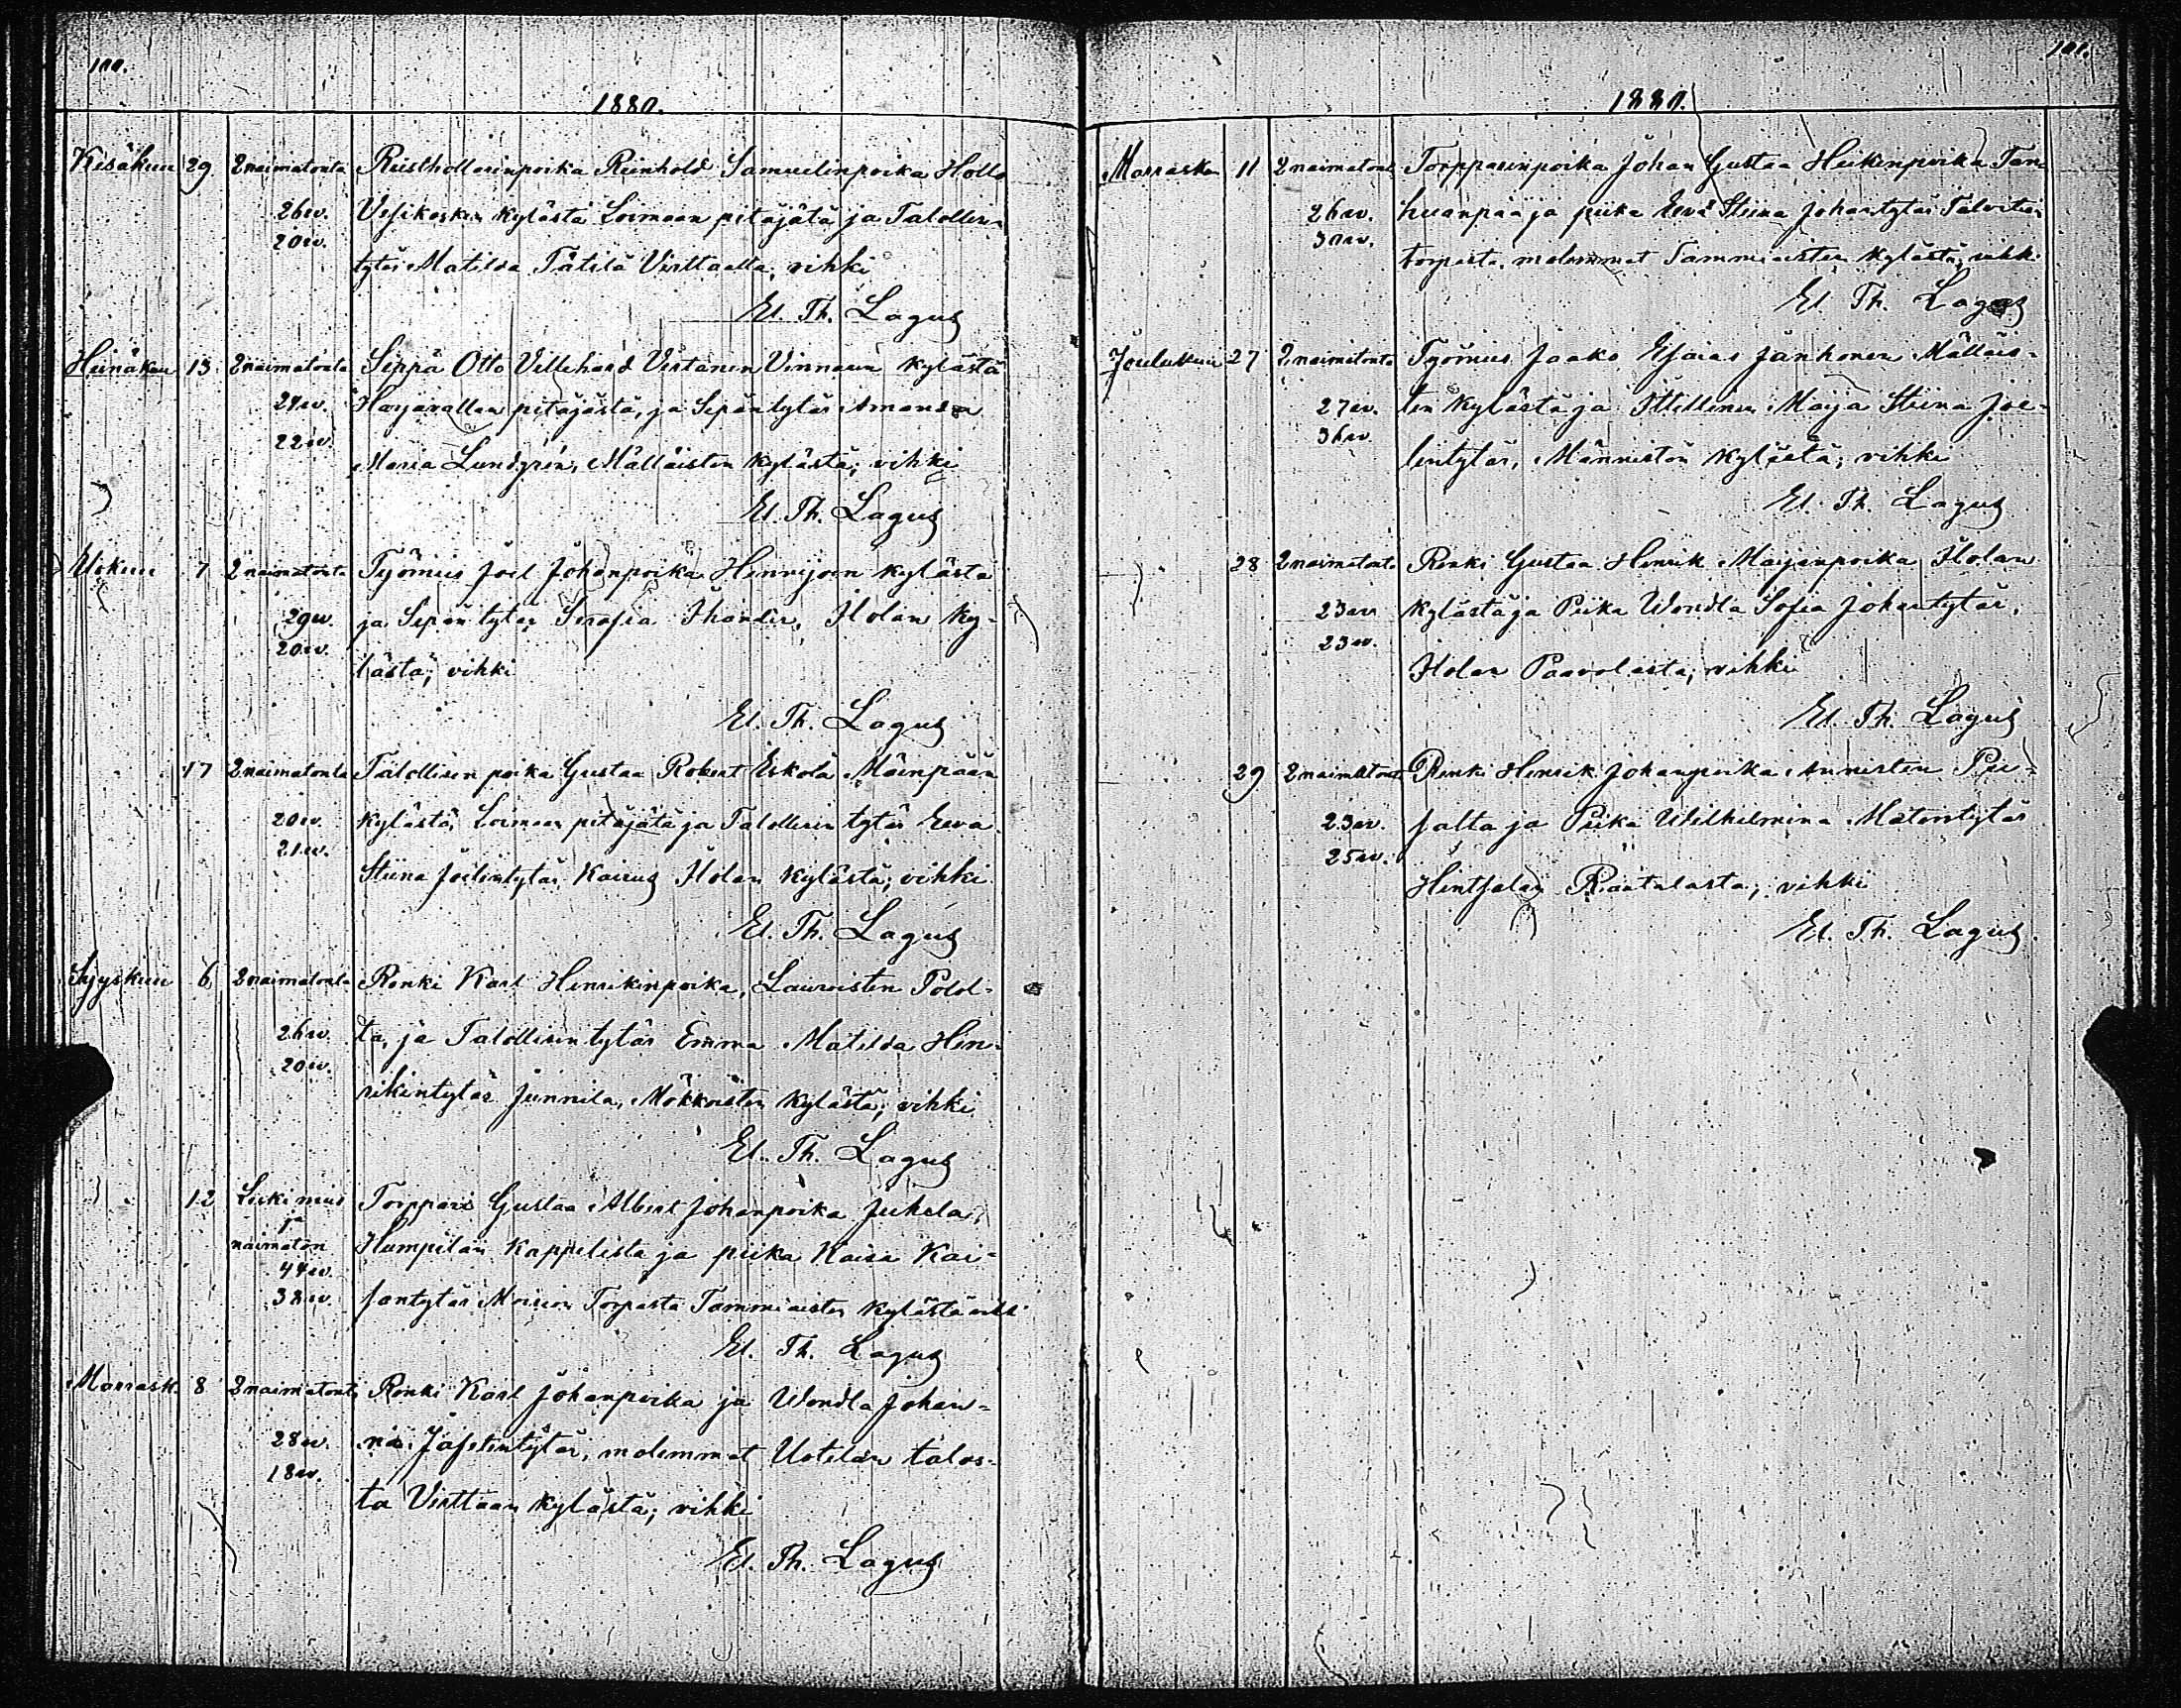 100.
1880.
Kesäkuu 29 2 naimatonta Rusthollarinpoika Reinhold Samuelinpoika Hollo
26 v. Vesikosken kylästä Loimaan pitäjätä ja Talollisen
20 v.
tytär Matilda Tätilä Virttaalta, vihki
El. Th. Lagus
Heinäkuu 13 2 naimatonta Seppä Otto Villehard Virtanen Vinnarin kylästä
24 v. Harjavallan pitäjästä, ja Sepäntytär Amanda
22 v.
Maria Lundgrén, Mälläisten kylästä; vihki
El. Th. Lagus
Elokuu 7 2 naimatonta Työmies Joel Johanpoika Hennijoen kylästä
29 v. ja Sepäntytär Serafia Thander, Holan ky-
20 v.
lästä; vihki
El. Th. Lagus
17 2 naimatonta Talollisen poika Gustaa Robert Eskola Mäenpään
20 v. kylästä, Loimaan pitäjätä ja Talollisen tytär Eeva
21 v.
Stiina Joelintytär Kairus Holan kylästä; vihki
El. Th. Lagus
Syyskuu 6 2 naimatonta Renki Karl Henrikinpoika, Lauroisten
26 v. ta, ja Talollisen tytär Emma Matilda Hen-
20 v.
rikintytär Junnila, Mökkoisten kylästä; vihki
El. Th. Lagus
12 Leskimies Torppari Gustaa Albert Johanpoika Juhela,
ja
naimaton Humppilan Kappelista ja piika Kaisa Kai-
44 v.
38 v. santytär Torpasta Tammiaisten kylästä vihki
El. Th. Lagus
Marrask. 8 2 naimatonta Renki Karl Johanpoika ja Wendla Johan-
28 v. na Jafetintytär, molemmat Uotilan talos-
18 v.
ta Virttaan kylästä; vihki
El. Th. Lagus
101.
1880.
Marrasku 11 2 naimatont. Torpparinpoika Johan Gustaa Heikinpoika Tan-
26 v. huanpää ja piika Eeva Stiina Johantytär Talvitien
30 v.
torpasta, molemmat Tammiaisten kylästä; vihki
El. Th. Lagus
Joulukuu 27 2 naimatonta Työmies Jaako Esaias Janhonen Mälläis-
27 v. ten kylästä ja Itsellinen Maija Stiina Joe-
36 v.
lintytär, Männistön kylästä; vihki
El. Th. Lagus
28 2 naimatonta Renki Gustaa Henrik Maijanpoika Holan
23 v. kylästä ja Piika Wendla Sofia Johantytär,
23 v.
Holan Paavolasta; vihki
El. Th. Lagus
29 2 naimatont. Renki Henrik Johanpoika Annisten Pii-
23 v. salta ja Piika Wilhelmina Matintytär
25 v.
Hintsalan Räätalasta; vihki
El. Th. Lagus